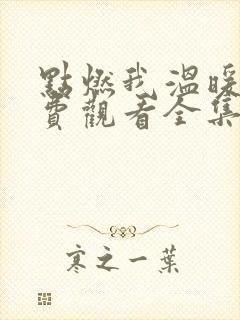 點燃我 溫暖
費觀看全集
寒之一葉